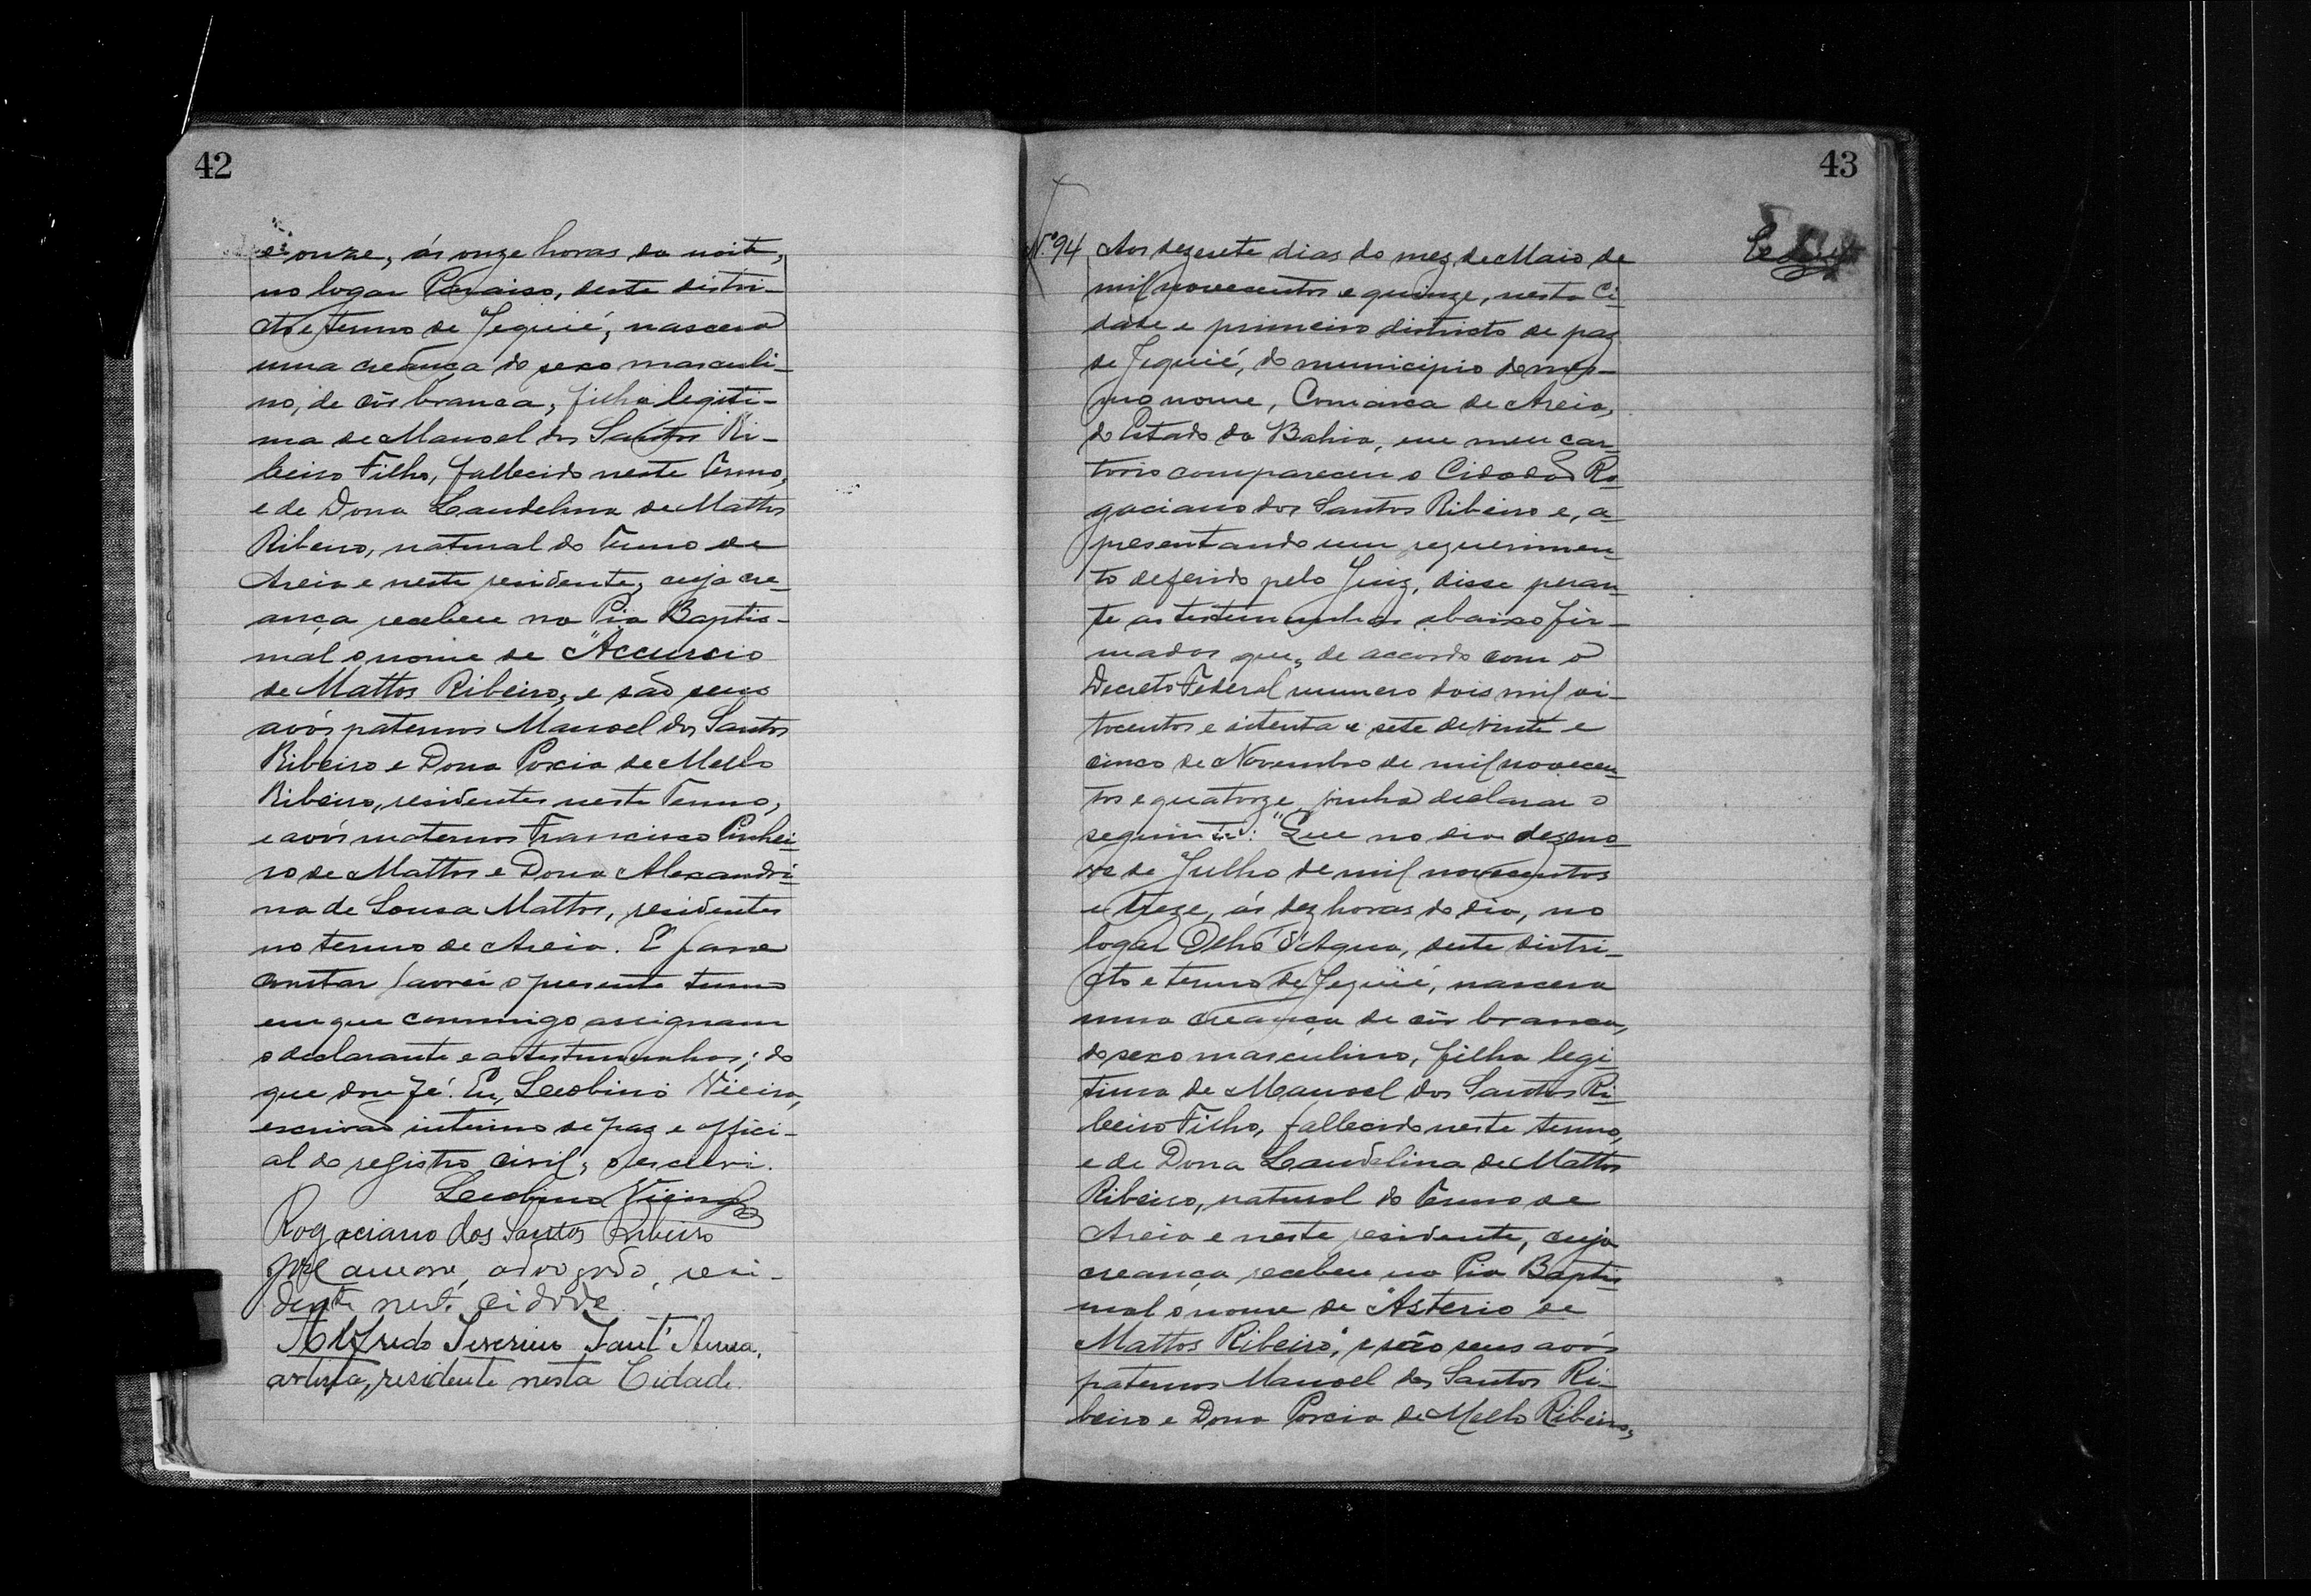 42
e onze, ás onze horas da noite,
no logar Paraiso, deste distri-
cto e termo de Jequié, nascera
uma creança do sexo masculi-
no, de côr branca, filha legiti-
ma de Manoel dos Santos Ri-
beiro Filho, fallecido neste Termo,
e de Dona Laudelina de Mattos
Ribeiro, natural do Termo de
Areia e neste residente, cuja cre-
ança recebeu na Pia Baptis-
mal o nome de "Accurcio
de Mattos Ribeiro, e são seus
avós paternos Manoel dos Santos
Ribeiro e Dona Porcia de Mello
Ribeiro, residentes neste Termo,
e avós maternos Francisco Pinhei-
ro de Mattos e Dona Alexandri-
na de Sousa Mattos, residentes
no termo de Areia. E para
constar lavrei o presente termo
em que commigo assignam
o declarante e as testemunhas; do
que dou fé. Eu, Leobino Vieira,
escrivão interino de paz e offici-
al do registro civil, o escrevi.
Leobino Vieira
Rogaciano dos Santos Ribeiro
advogado, resi-
dente nesta cidade
Alfredo Severino Sant'Anna,
artista, residente nesta Cidade.
43
N.º 94 Aos dezesete dias do mez de Maio de
mil novecentos e quinze, nesta Ci-
dade e primeiro districto de paz
de Jequié, do municipio do mes-
mo nome, Comarca de Areia,
do Estado da Bahia, em meu car-
torio compareceu o Cidadão Ro-
gaciano dos Santos Ribeiro e, a-
presentando um requerimen-
to deferido pelo Juiz, disse peran-
te as testemunhas abaixo fir-
madas que, de accordo com o
Decreto Federal numero dois mil oi-
tocentos e oitenta e sete de vinte e
cinco de Novembro de mil novecen-
tos e quatorze, vinha declarar o
seguinte: "Que no dia dezeno-
ve de Julho de mil novecentos
e treze, ás dez horas do dia, no
logar Olho d'Agua, deste distri-
cto e termo de Jequié, nascera
uma creança de côr branca,
do sexo masculino, filha legi-
tima de Manoel dos Santos Ri-
beiro Filho, fallecido neste termo,
e de Dona Laudelina de Mattos
Ribeiro, natural do Termo de
Areia e neste residente, cuja
creança recebeu na Pia Baptis-
mal o nome de "Asterio de
Mattos Ribeiro", e são seus avós
paternos Manoel dos Santos Ri-
beiro e Dona Porcia de Mello Ribeiro,